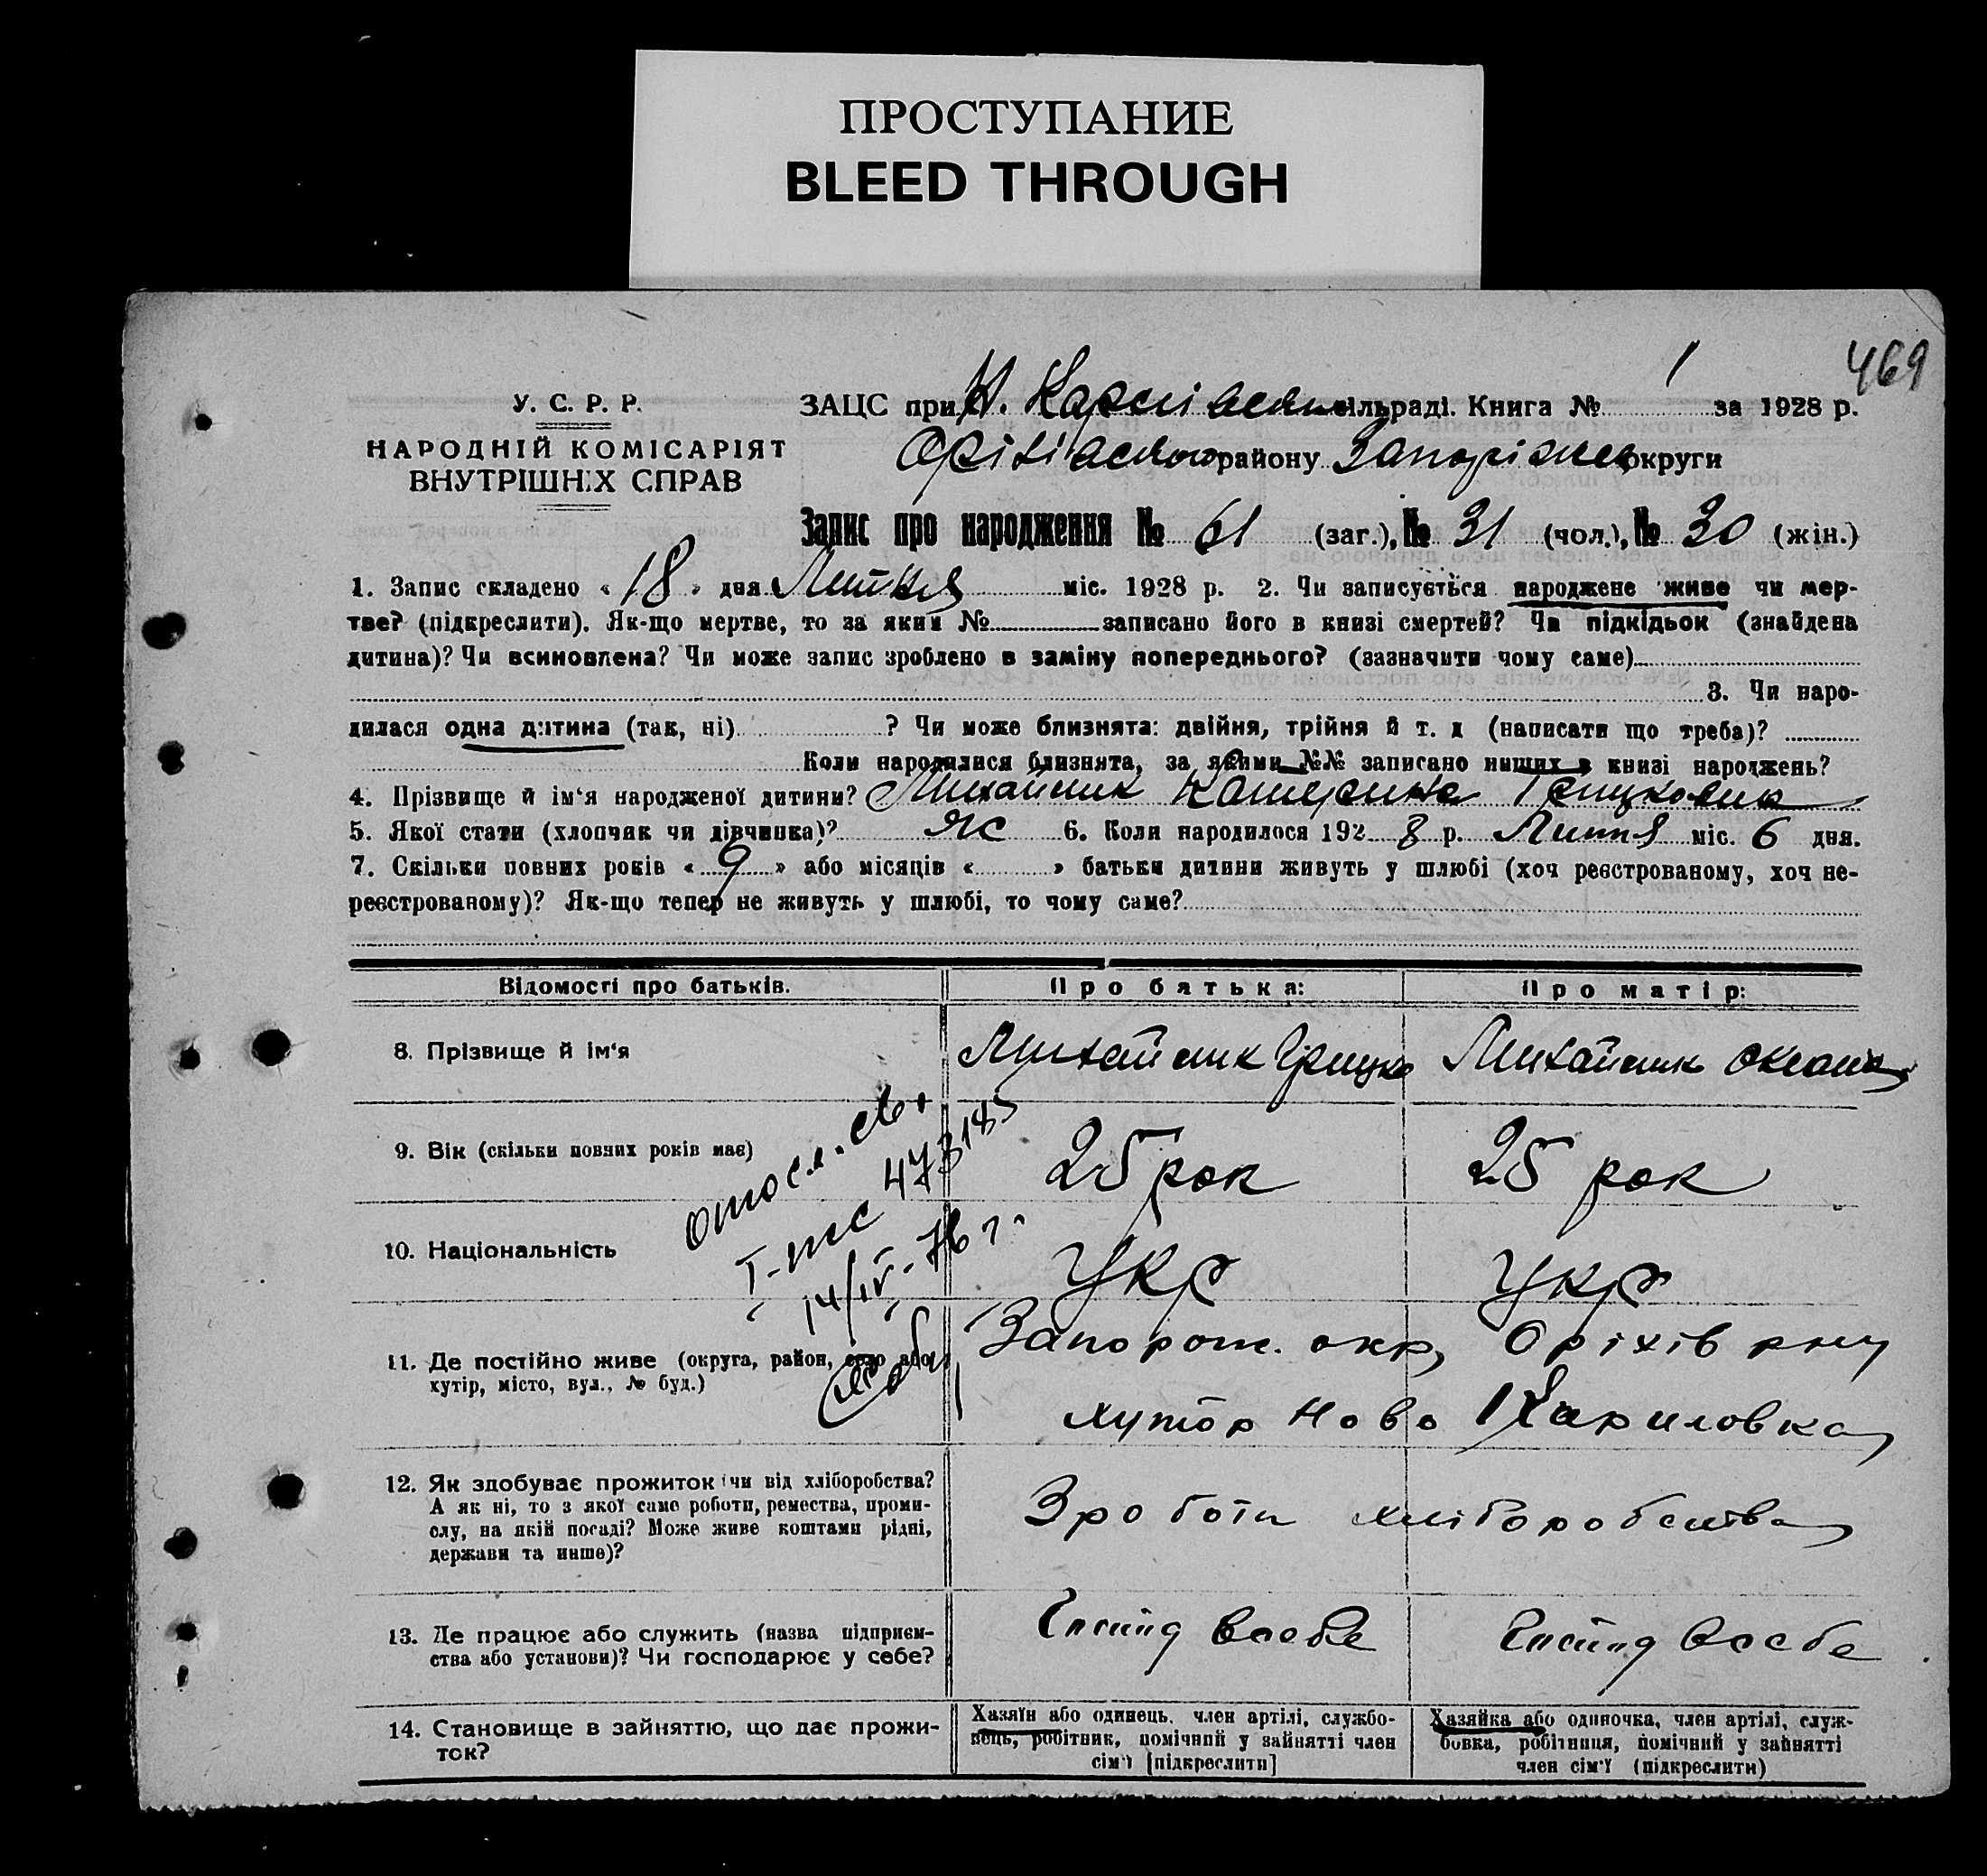 ПРОСТУПАНИЕ
BLEED THROUGH
469
У. С. Р. Р.
НАРОДНІЙ КОМІСАРІЯТ
ВНУТРІШНІХ СПРАВ
ЗАЦС при Н. сільраді. Книга № 1 за 1928 р.
району округи
Запис про народження № 61 (заг.), № 31 (чол.), № 30 (жін.)
1. Запис складено « 18 » дня Липня міс. 1928 р. 2. Чи записується народжене живе чи мер-
тве? (підкреслити). Як-що мертве, то за яким № записано його в книзі смертей? Чи підкідьок (знайдена
дитина)? Чи всиновлена? Чи може запис зроблено в заміну попереднього? (зазначити чому саме)
3. Чи наро-
дилася одна дитина (так, ні) ? Чи може близнята: двійня, трійня й т. д (написати що треба)?
Коли народилися близнята, за якими №№ записано инших в книзі народжень?
4. Прізвище й ім‘я народженої дитини? Михайлик Катерина
5. Якої статі (хлопчик чи дівчинка)? жс 6. Коли народилося 192 8 р. Липня міс. 6 дня.
7. Скільки повних років « 9 » або місяців « » батьки дитини живуть у шлюбі (хоч реєстрованому, хоч не-
реєстрованому)? Як-що тепер не живуть у шлюбі, то чому саме?
Відомості про батьків. Про батька: Про матір:
8. Прізвище й ім‘я Михайлик Грицько Михайлик Оксана
9. Вік (скільки повних років має) 25 рок 25 рок
473185
14/IV-76 г.
10. Національність Укр Укр
11. Де постійно живе (округа, район, село або
хутір, місто, вул., № буд.)
Запорож. окр, Оріхів рну
хутор Ново Карловка
12. Як здобуває прожиток чи від хліборобства?
А як ні, то з якої само роботи, ремества, проми-
слу, на якій посаді? Може живе коштами рідні,
держави та инше)?
З роботи хліборобства
13. Де працює або служить (назва підприєм-
ства або установи)? Чи господарює у себе?
14. Становище в зайняттю, що дає прожи-
ток?
Хазяїн або одинець, член артілі, службо-
вець, робітник, помічний у зайнятті член
сім'ї [підкреслити]
Хазяйка або одиночка, член артілі, служ-
бовка, робітниця, помічний у зайнятті
член сім'ї (підкреслити)